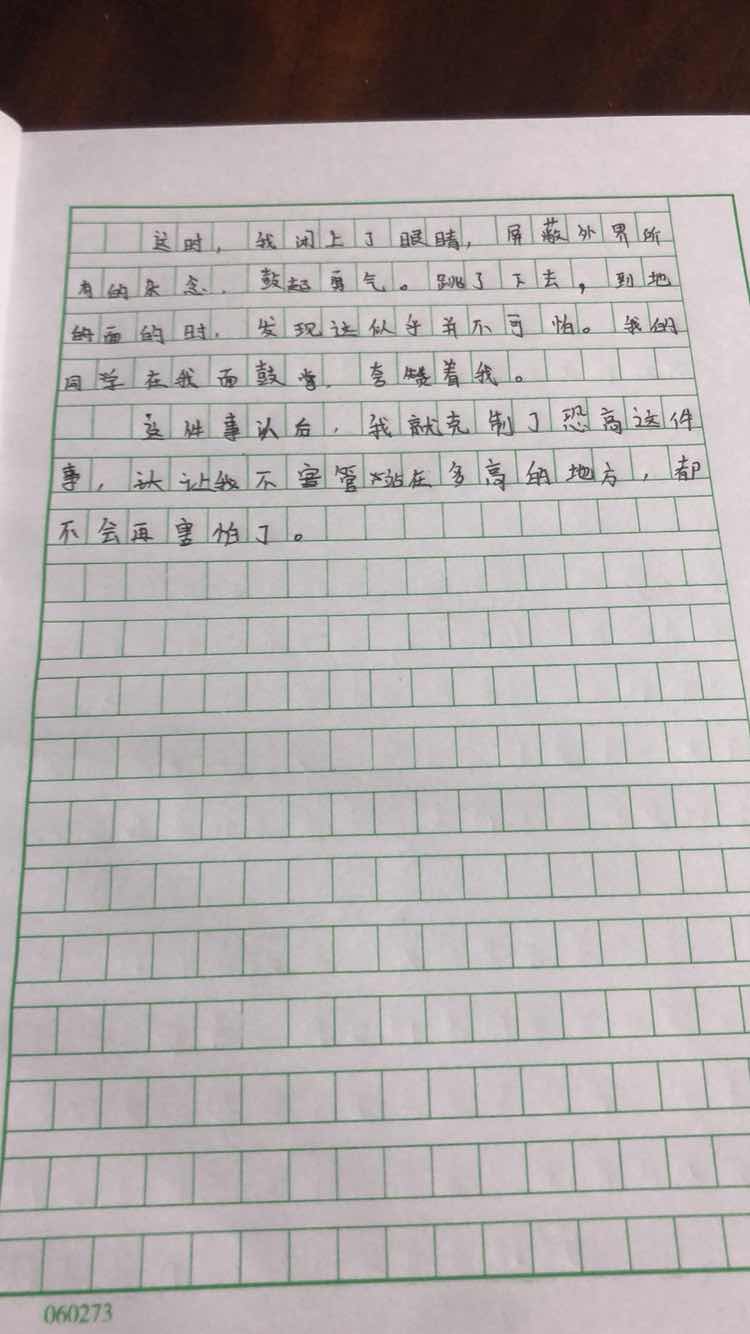 这时，我闭上了眼睛，屏蔽外界所
有的杂念，鼓起勇气。跳了下去，到地
面的时，发现这似乎并不可怕。我的
同学在我面鼓掌，夸赞着我。
这件事认后，我就克制了恐高这件
事，让我不管站在多高的地方，都
不会再害怕了。
060273